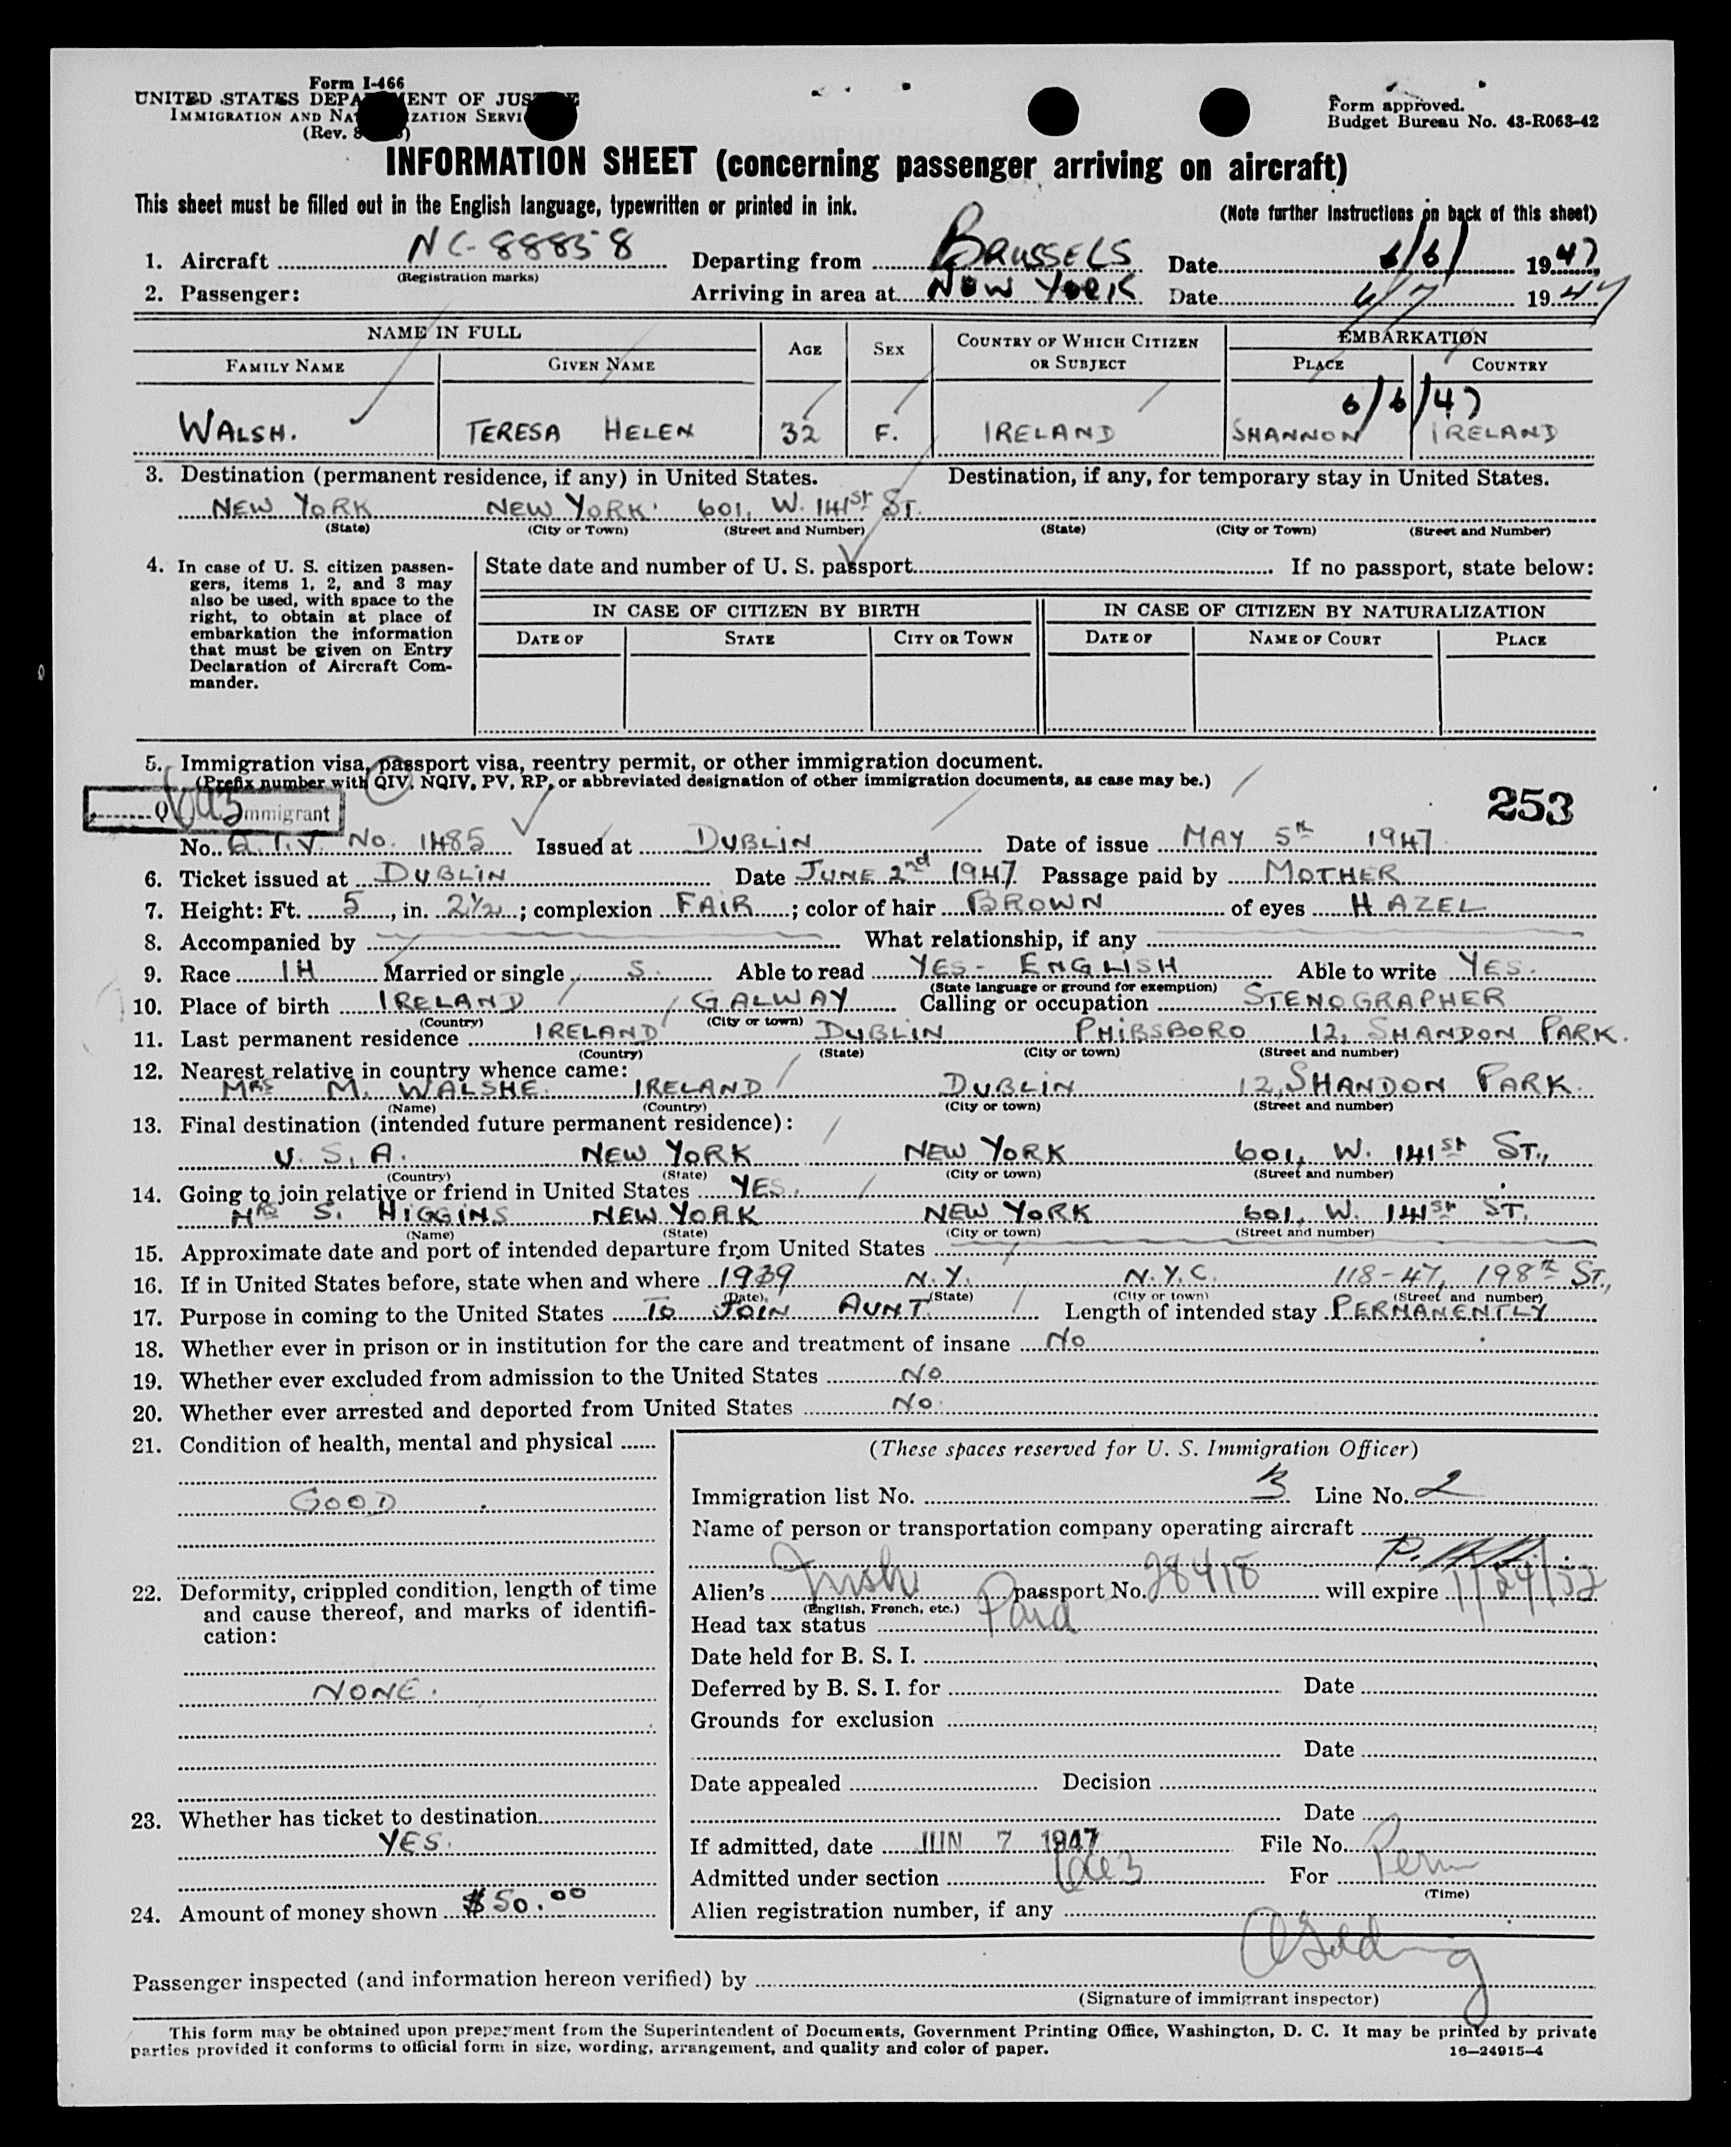 Form I-466
UNITED STATES DEPA MENT OF JUS
IMMIGRATION AND NA ZATION SERVI
(Rev. 8
Form approved.
Budget Bureau No. 43-R063-42
INFORMATION SHEET (concerning passenger arriving on aircraft)
This sheet must be filled out in the English language, typewritten or printed in ink.
(Note further instructions on back of this sheet)
1. Aircraft NC-88858 Departing from BRUSSELS Date 6/6/ 1947
(Registration marks)
2. Passenger: Arriving in area at NEW YORK Date 6/7 1947
NAME IN FULL AGE SEX COUNTRY OF WHICH CITIZEN OR SUBJECT EMBARKATION
FAMILY NAME GIVEN NAME PLACE COUNTRY
6/6/47
WALSH. TERESA HELEN 32 F. IRELAND SHANNON IRELAND
3. Destination (permanent residence, if any) in United States. Destination, if any, for temporary stay in United States.
NEW YORK NEW YORK 601, W. 141ST ST.
(State) (City or Town) (Street and Number) (State) (City or Town) (Street and Number)
4. In case of U. S. citizen passen-
gers, items 1, 2, and 3 may
also be used, with space to the
right, to obtain at place of
embarkation the information
that must be given on Entry
Declaration of Aircraft Com-
mander.
State date and number of U. S. passport If no passport, state below:
IN CASE OF CITIZEN BY BIRTH IN CASE OF CITIZEN BY NATURALIZATION
DATE OF STATE CITY OR TOWN DATE OF NAME OF COURT PLACE
5. Immigration visa, passport visa, reentry permit, or other immigration document.
(Prefix number with QIV, NQIV, PV, RP, or abbreviated designation of other immigration documents, as case may be.)
Q 6a3 mmigrant
253
No. Q.I.V. No. 1485 Issued at DUBLIN Date of issue MAY 5th 1947
6. Ticket issued at DUBLIN Date JUNE 2nd 1947 Passage paid by MOTHER
7. Height: Ft. 5, in. 2½; complexion FAIR; color of hair BROWN of eyes HAZEL
8. Accompanied by What relationship, if any
9. Race IH Married or single S. Able to read YES- ENGLISH Able to write YES.
(State language or ground for exemption)
10. Place of birth IRELAND GALWAY Calling or occupation STENOGRAPHER
(Country) (City or town)
11. Last permanent residence IRELAND DUBLIN PHIBSBORO 12, SHANDON PARK.
(Country) (State) (City or town) (Street and number)
12. Nearest relative in country whence came:
MRS M. WALSHE. IRELAND DUBLIN 12, SHANDON PARK.
(Name) (Country) (City or town) (Street and number)
13. Final destination (intended future permanent residence):
U.S.A. NEW YORK NEW YORK 601, W. 141st ST.,
(Country) (State) (City or town) (Street and number)
14. Going to join relative or friend in United States YES.
MRS S. HIGGINS NEW YORK NEW YORK 601, W. 141st ST.
(Name) (State) (City or town) (Street and number)
15. Approximate date and port of intended departure from United States
16. If in United States before, state when and where 1939 N.Y. N.Y.C. 118-47, 198th ST.,
(Date) (State) (City or town) (Street and number)
17. Purpose in coming to the United States TO JOIN AUNT. Length of intended stay PERMANENTLY
18. Whether ever in prison or in institution for the care and treatment of insane No
19. Whether ever excluded from admission to the United States No
20. Whether ever arrested and deported from United States No.
21. Condition of health, mental and physical
GOOD
22. Deformity, crippled condition, length of time
and cause thereof, and marks of identifi-
cation:
NONE.
23. Whether has ticket to destination
YES.
24. Amount of money shown $50.00
(These spaces reserved for U. S. Immigration Officer)
Immigration list No. 3 Line No. 2
Name of person or transportation company operating aircraft
P.A.A.
Alien's Irish passport No. 28418 will expire 1/24/52
(English, French, etc.)
Head tax status Paid
Date held for B. S. I.
Deferred by B. S. I. for Date
Grounds for exclusion
Date
Date appealed Decision
Date
If admitted, date JUN 7 1947 File No.
Admitted under section 6a3 For Perm
(Time)
Alien registration number, if any
Passenger inspected (and information hereon verified) by
(Signature of immigrant inspector)
This form may be obtained upon prepayment from the Superintendent of Documents, Government Printing Office, Washington, D. C. It may be printed by private
parties provided it conforms to official form in size, wording, arrangement, and quality and color of paper.
16—24915-4